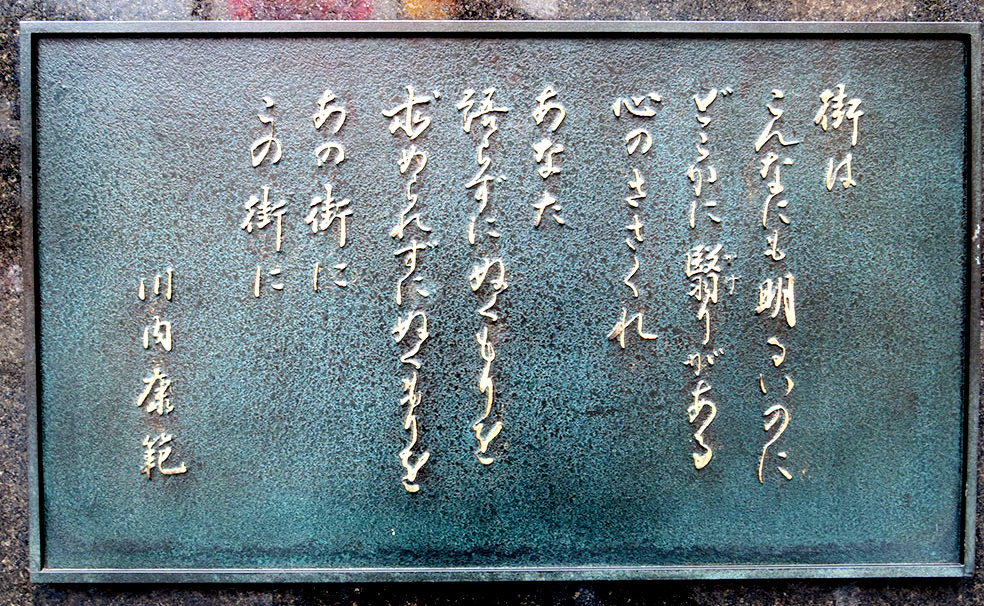 街は
こんなにも明るいのに
どこかに翳りがある
かげ
心のささくれ
あなた
語らずにぬくもりを
求められずにぬくもりを
あの街に
この街に
川内康範